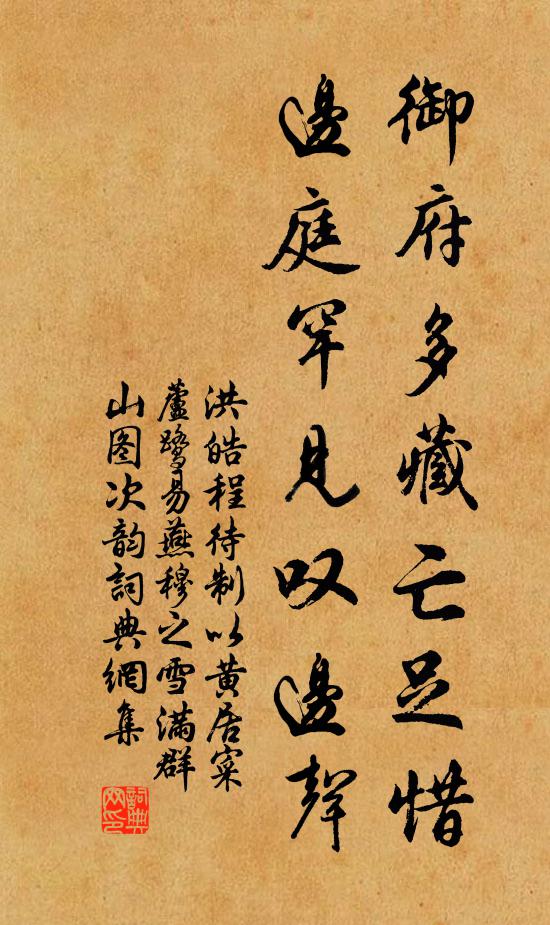 御府多藏亡足惜
邊庭罕見叹邊聲
洪皓程待制以黄居寀
蘆鹭易燕穆之雪满群
山图次韵詞典網集
詞典網印